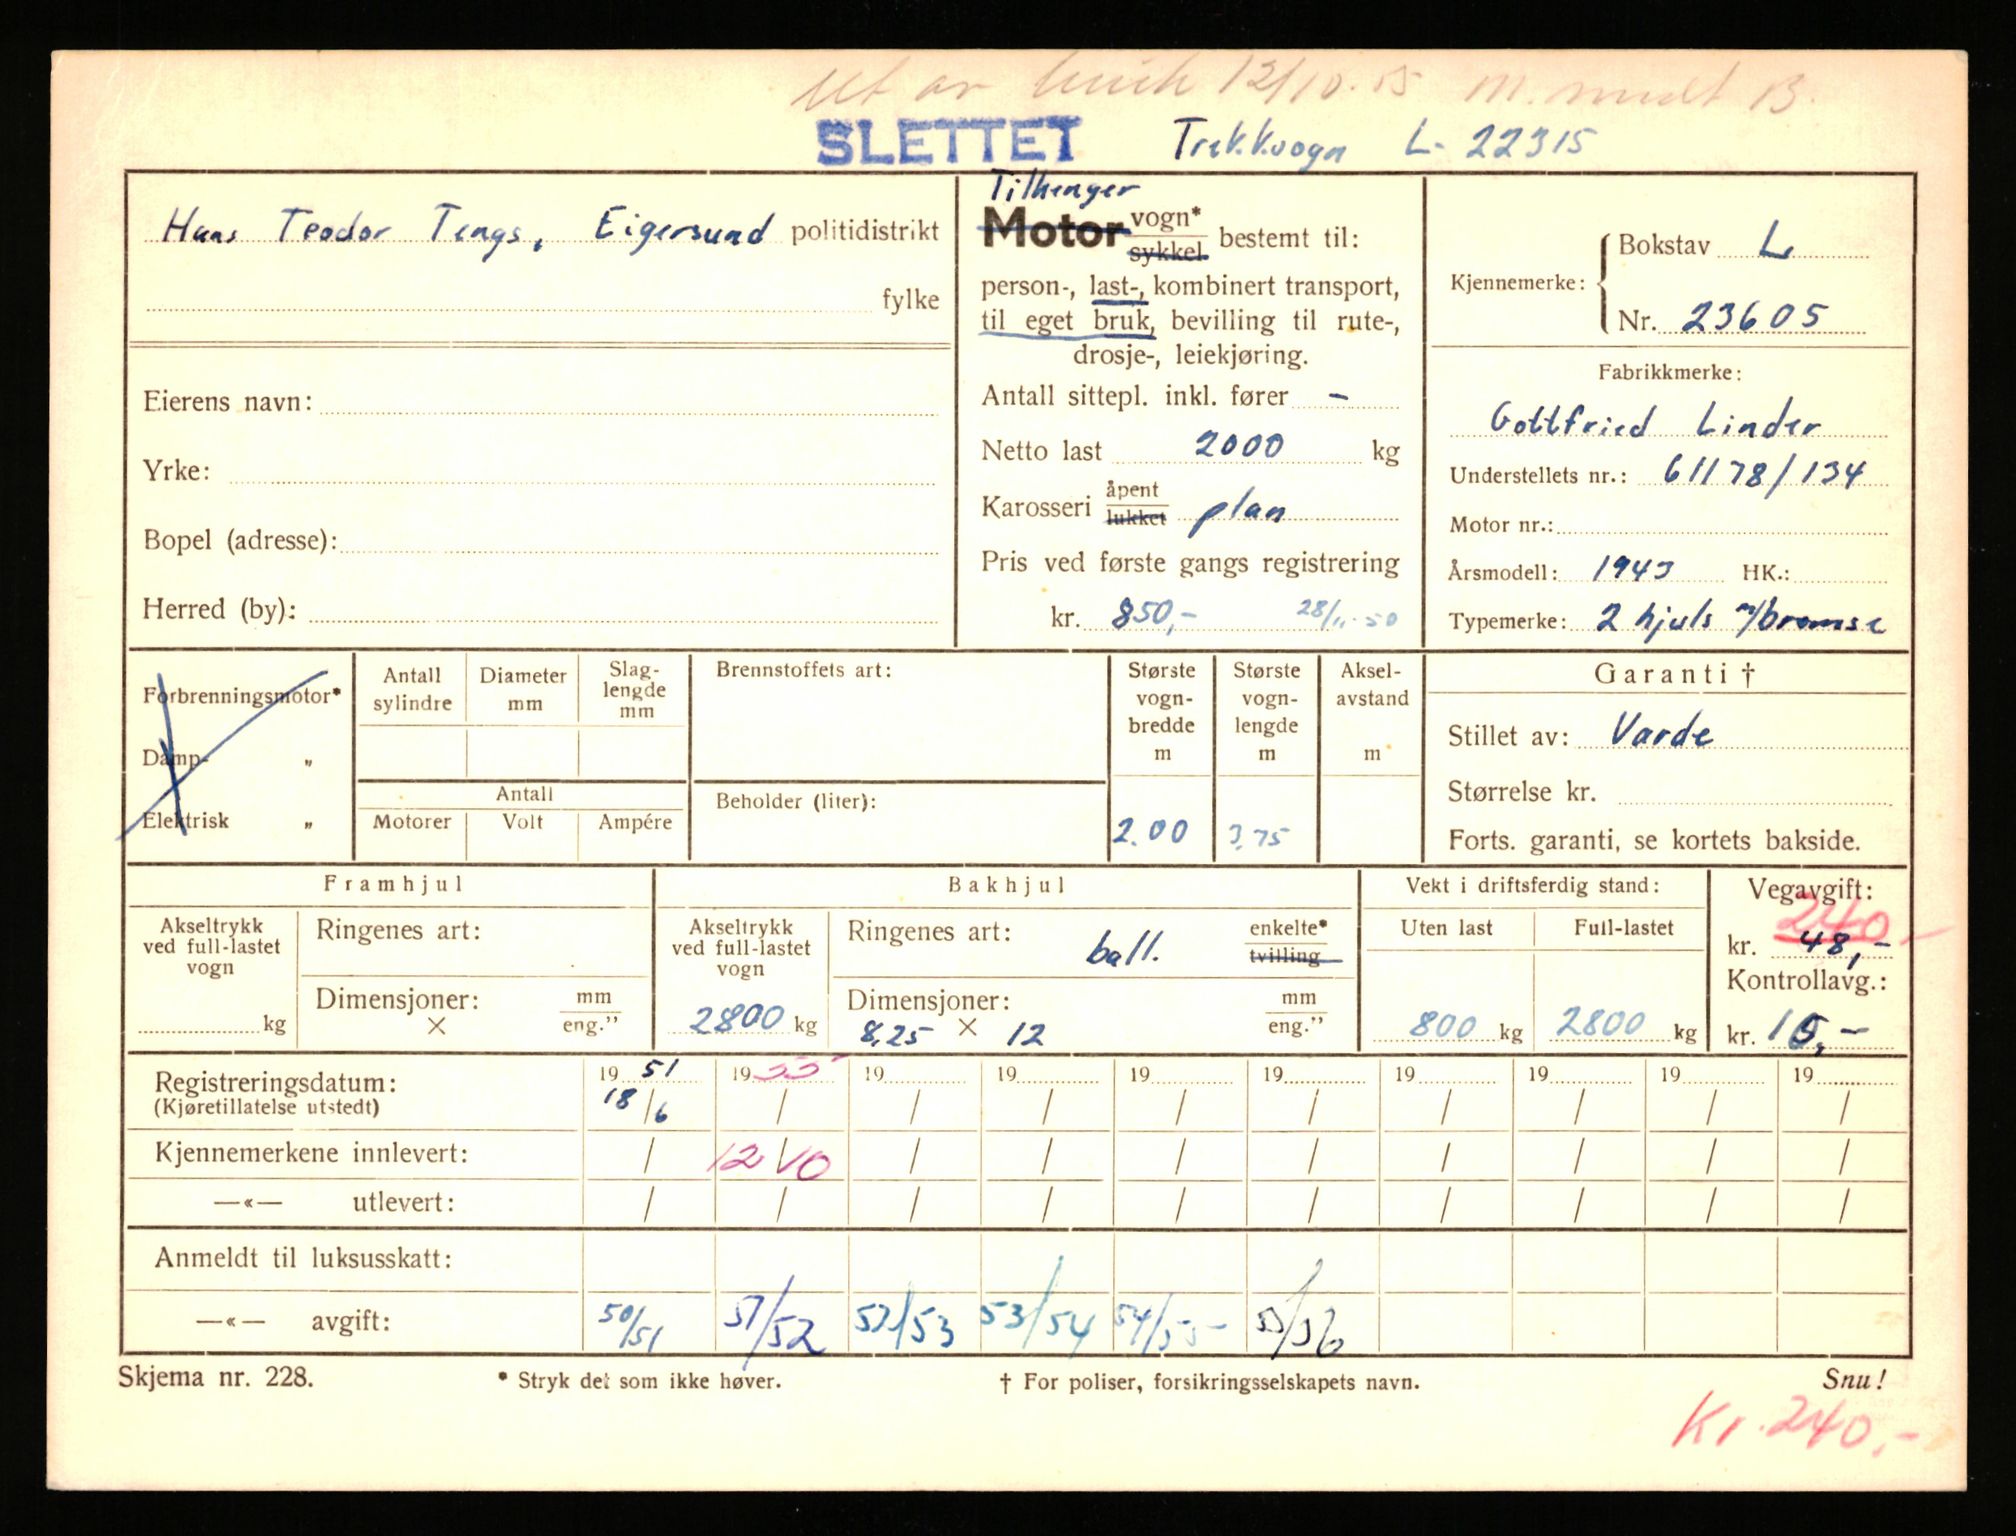 Ut av bruk 12/10-55 M. 
SLETTET Trekkvogn L- 22315
Hans Teodor Tengs, Eigersund politidistrikt
fylke
Eierens navn:
Yrke:
Bopel (adresse):
Herred (by):
Tilhenger
Motor vogn* sykkel bestemt til:
person-, last-, kombinert transport,
til eget bruk, bevilling til rute-,
drosje-, leiekjøring.
Antall sittepl. inkl. fører -
Netto last 2000 kg
Karosseri åpent lukket plan
Pris ved første gangs registrering
kr. 850,- 28/11-50
Kjennemerke: Bokstav L
Nr. 23605
Fabrikkmerke:
Gottfried Linder
Understellets nr.: 61178/134
Motor nr.:
Årsmodell: 1943 HK.:
Typemerke: 2 hjuls m/bromse
Forbrenningsmotor*
Damp- „
Elektrisk „
Antall sylindre
Diameter mm
Slag-lengde mm
Antall
Motorer Volt Ampére
Brennstoffets art:
Beholder (liter):
Største vogn-bredde m
2.00
Største vogn-lengde m
3.75
Aksel-avstand m
Garanti †
Stillet av: Varde
Størrelse kr.
Forts. garanti, se kortets bakside.
Framhjul
Akseltrykk ved full-lastet vogn
kg
Ringenes art:
Dimensjoner: mm
× eng.”
Bakhjul
Akseltrykk ved full-lastet vogn
2800 kg
Ringenes art: ball. enkelte* tvilling
Dimensjoner: mm
8,25 × 12 eng.”
Vekt i driftsferdig stand:
Uten last Full-lastet
800 kg 2800 kg
Vegavgift:
240,-
kr. 48,-
Kontrollavg.:
kr. 15,-
Registreringsdatum: 19 51 19 55 19 19 19 19 19 19 19 19
(Kjøretillatelse utstedt) 18/6 / / / / / / / / /
Kjennemerkene innlevert: / 12/10 / / / / / / / /
—«— utlevert: / / / / / / / / / /
Anmeldt til luksusskatt:
—«— avgift: 50/51 51/52 52/53 53/54 54/55 55/56
Skjema nr. 228. * Stryk det som ikke høver. † For poliser, forsikringsselskapets navn. Snu!
Kr. 240,-